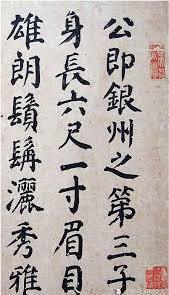 公即銀州之第三子
身長六尺一寸眉目
雄朗鬚髯灑秀雅